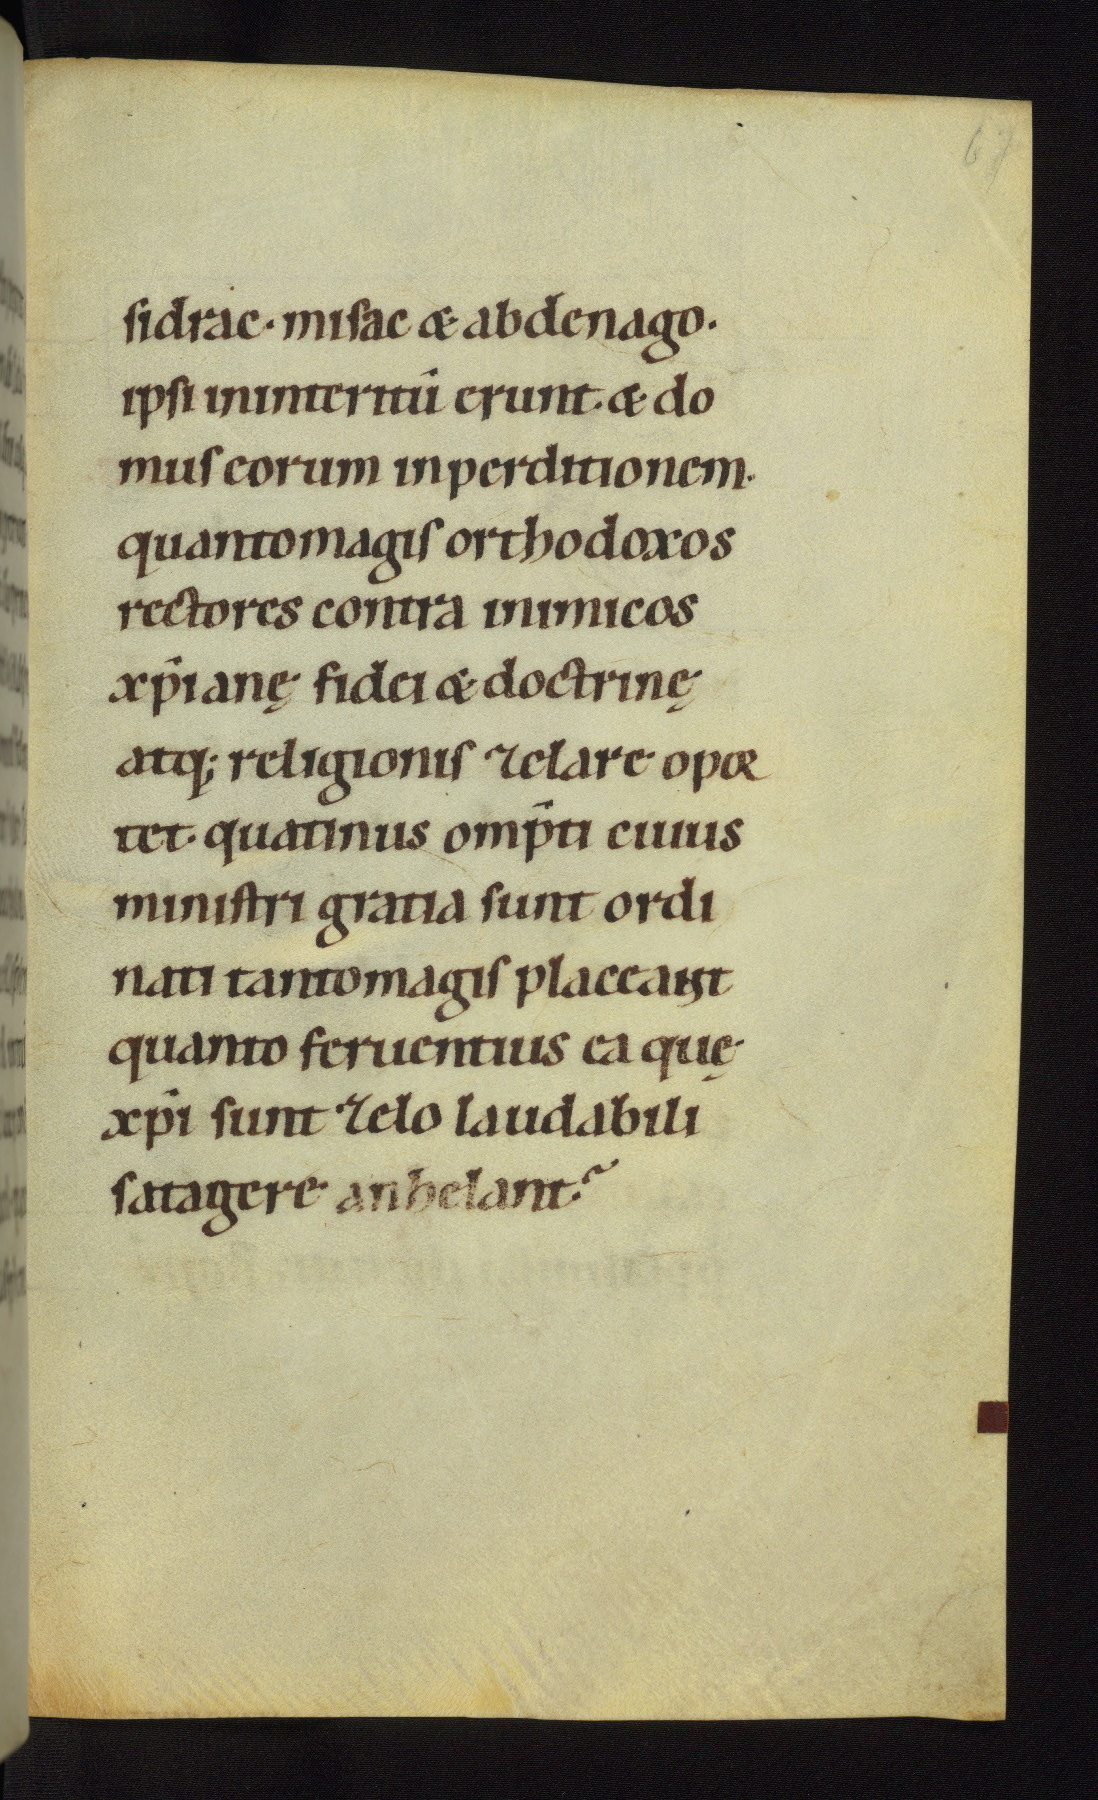 67
sidrac. misac & abdenago.
ipsi in interitū erunt. & do
mus eorum in perditionem.
quanto magis orthodoxos
rectores contra inimicos
xp̄ianę fidei & doctrinę
atq; religionis zelare opor
tet. quatinus omp̄ti cuius
ministri gratia sunt ordi
nati tanto magis placeant
quanto feruentius ea quę
xp̄i sunt zelo laudabili
satagere anhelant.